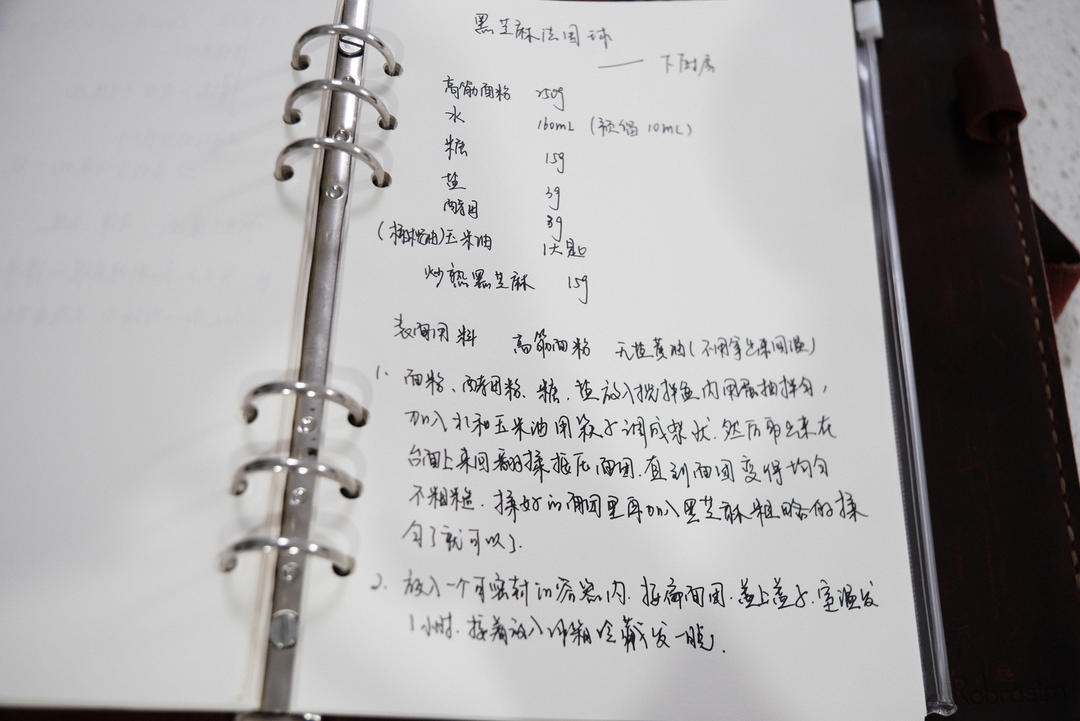 黑芝麻法国球
—— 下厨房
高筋面粉 250g
水 160mL (预留10mL)
糖 15g
盐 3g
酵母 3g
(橄榄油)玉米油 1大匙
炒熟黑芝麻 15g
表面用料 高筋面粉 无盐黄油(不用拿出来回温)
1. 面粉、酵母粉、糖、盐放入搅拌盆内用蛋抽拌匀,
加入水和玉米油用筷子调成絮状.然后取出来在
台面上来回翻揉按压面团.直到面团变得均匀
不粗糙.揉好的面团里再加入黑芝麻粗略的揉
匀了就可以了.
2. 放入一个可密封的容器内.按扁面团.盖上盖子.室温发
1小时.接着放入冰箱冷藏发一晚.